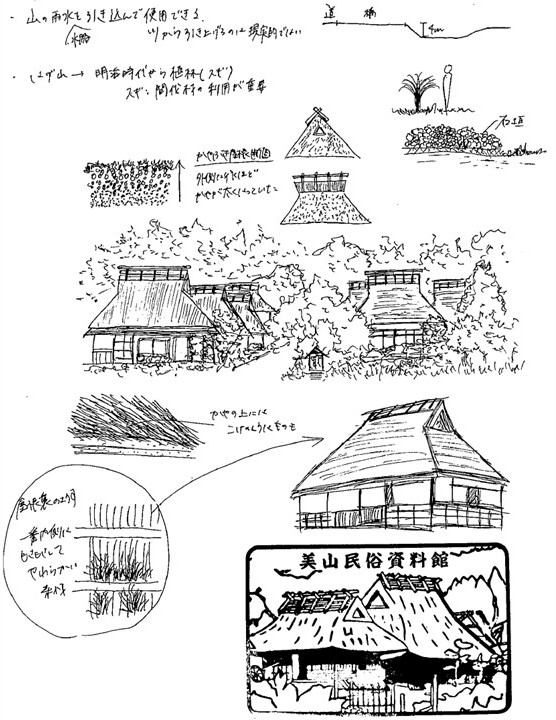 ・山の雨水を引き込んで使用できる.
水路
川から引き上げるのは現実的でない
道 橋
4m
・はげ山→明治時代から植林(スギ)
スギ：間伐材の利用が重要
石垣
かやぶき屋根断面
外側に行くほど
かやが太くなっていた
かやの上に
こけのようなもの
屋根裏の
一番内側は
やわらかい
美山民俗資料館